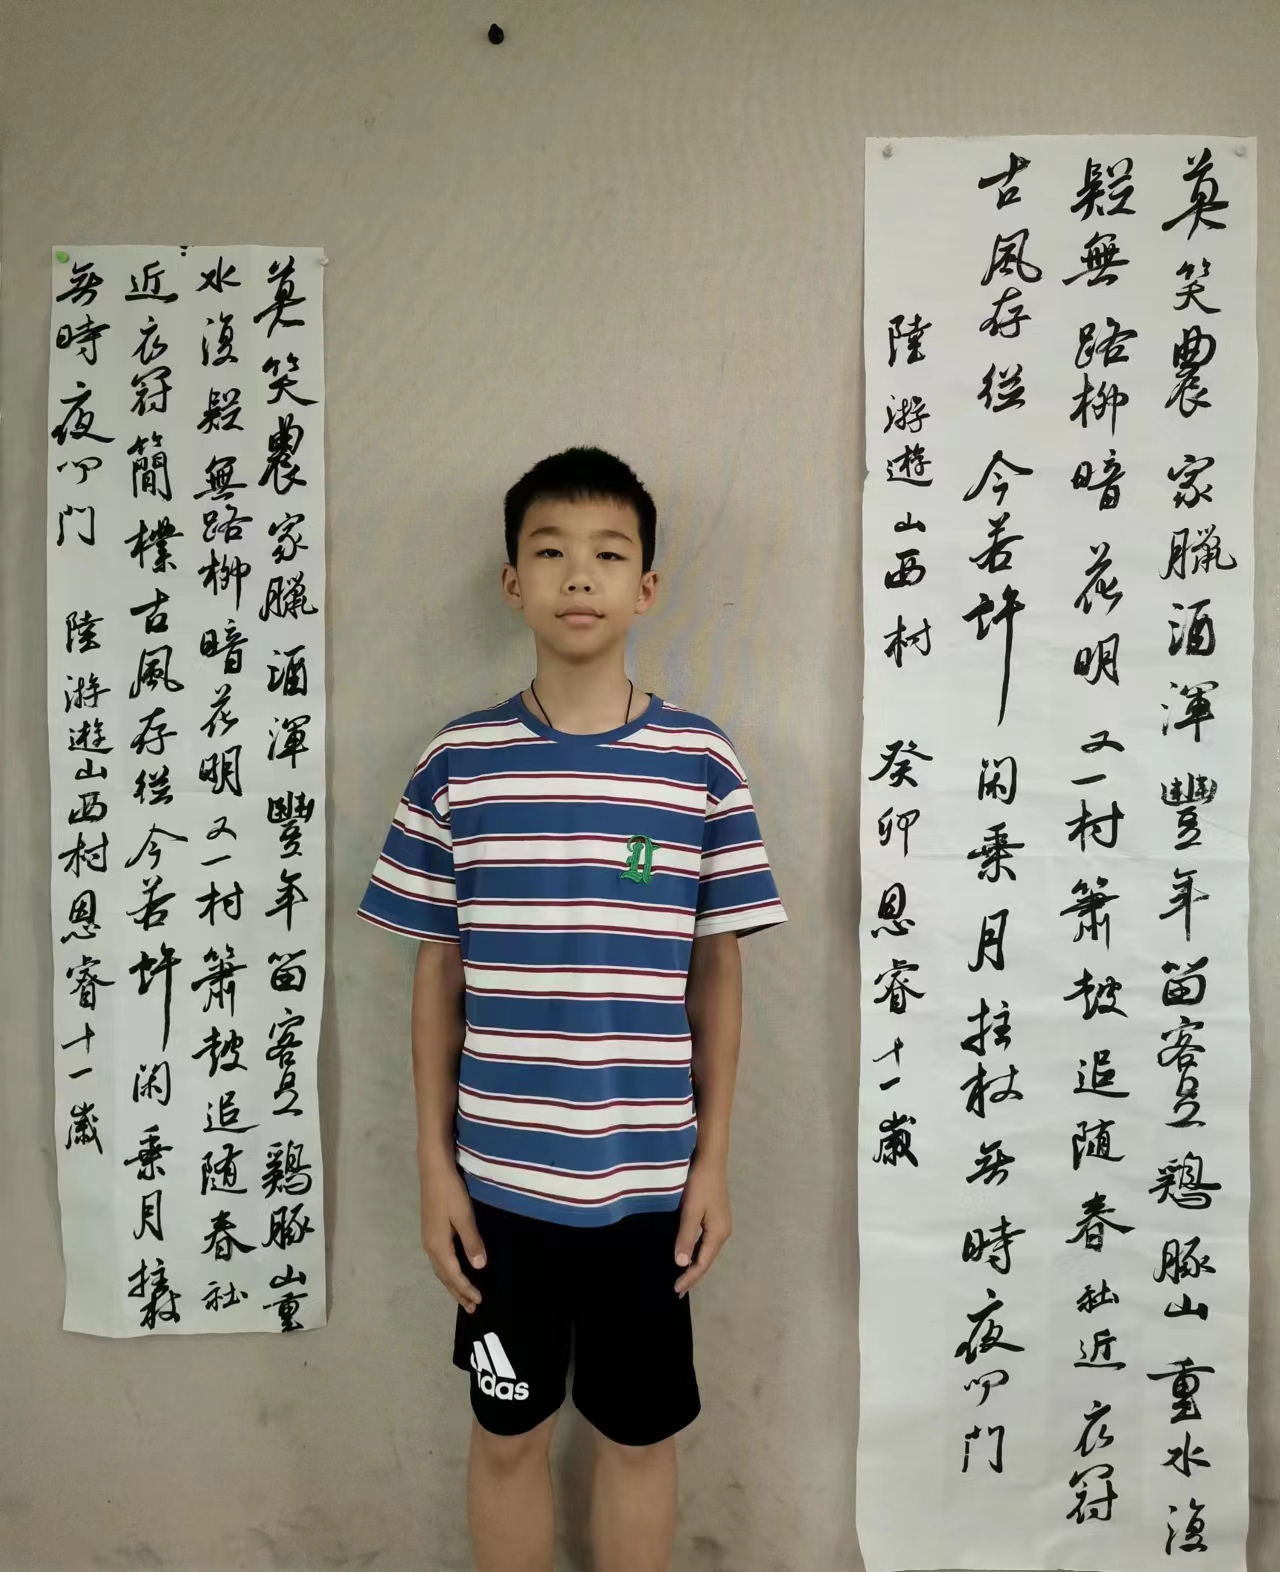 莫笑農家臘酒渾豐年留客足鷄豚山重
水復疑無路柳暗花明又一村簫鼓追随春社
近衣冠簡樸古風存從今若許闲乘月拄杖
無時夜叩门 陸游遊山西村恩睿十一歲
adidas
莫笑農家臘酒渾豐年留客足鷄豚山重水復
疑無路柳暗花明又一村簫鼓追随春社近衣冠
古風存從今若許闲乘月拄杖無時夜叩门
陸游遊山西村 癸卯恩睿十一歲